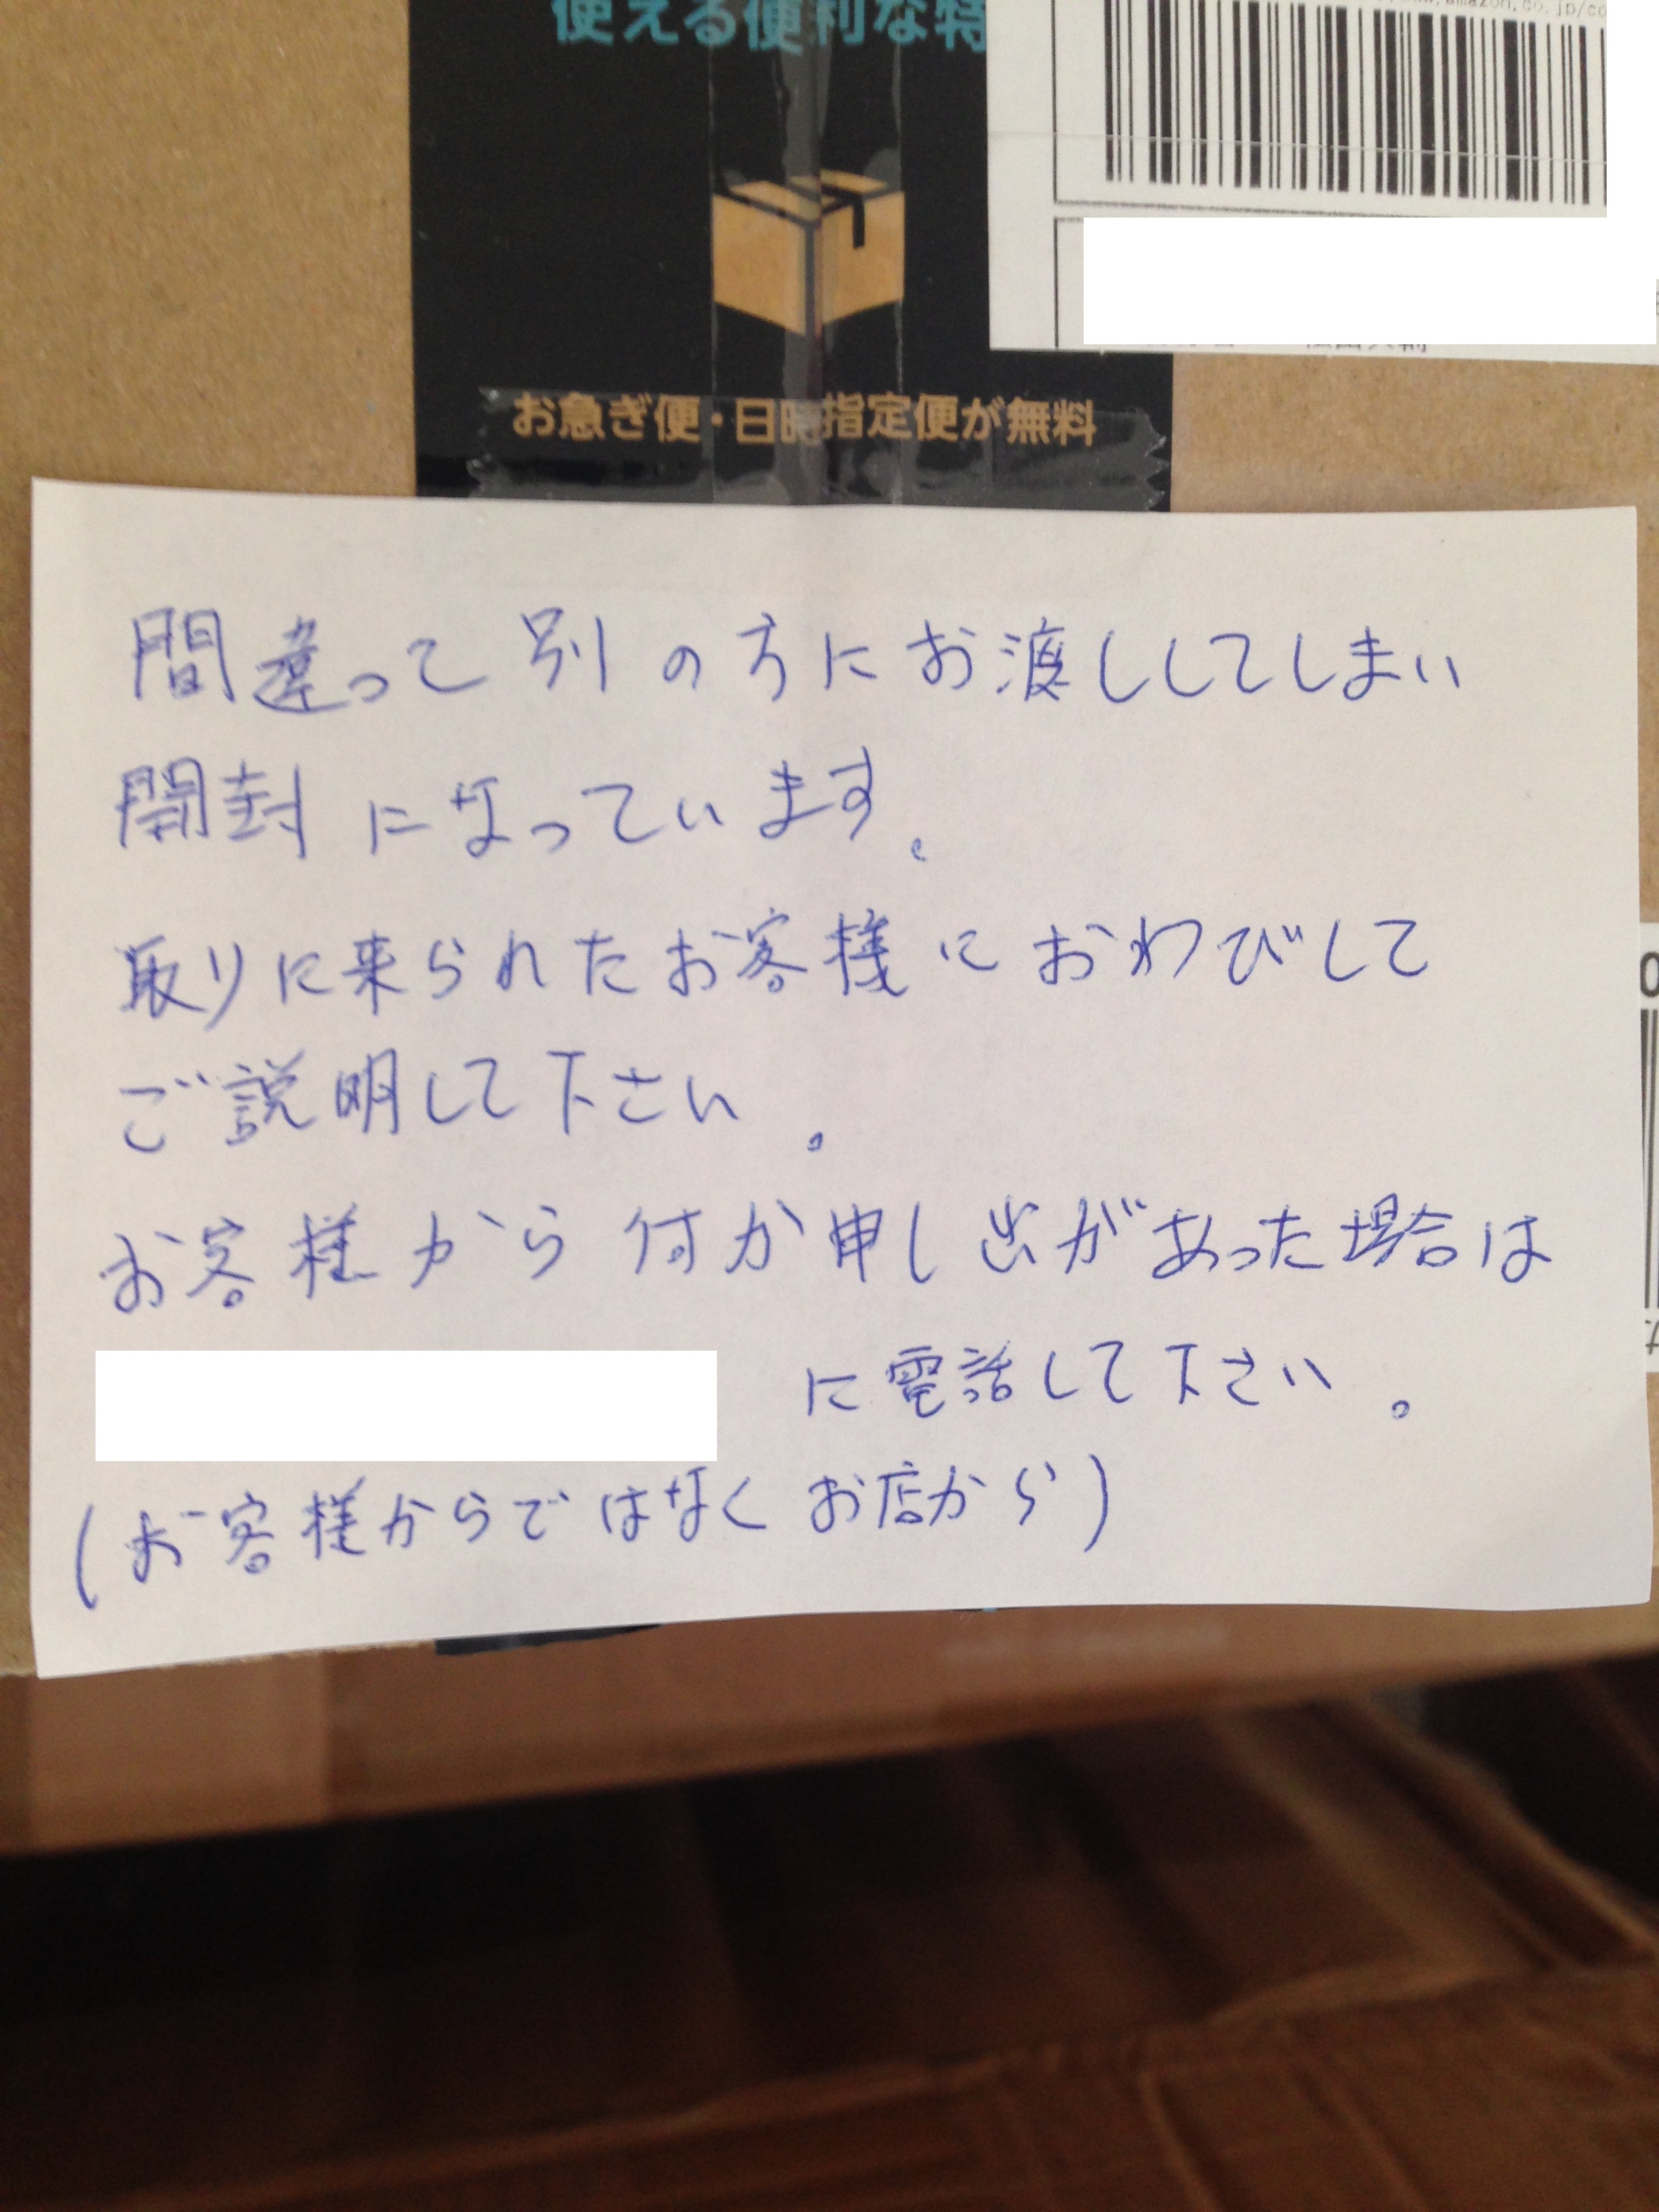 使える便利な特
amazon.co.jp/co
お急ぎ便・日時指定便が無料
間違って別の方にお渡ししてしまい
開封になっています。
取りに来られたお客様におわびして
ご説明して下さい。
お客様から何か申し出があった場合は
に電話して下さい。
(お客様からではなくお店から)